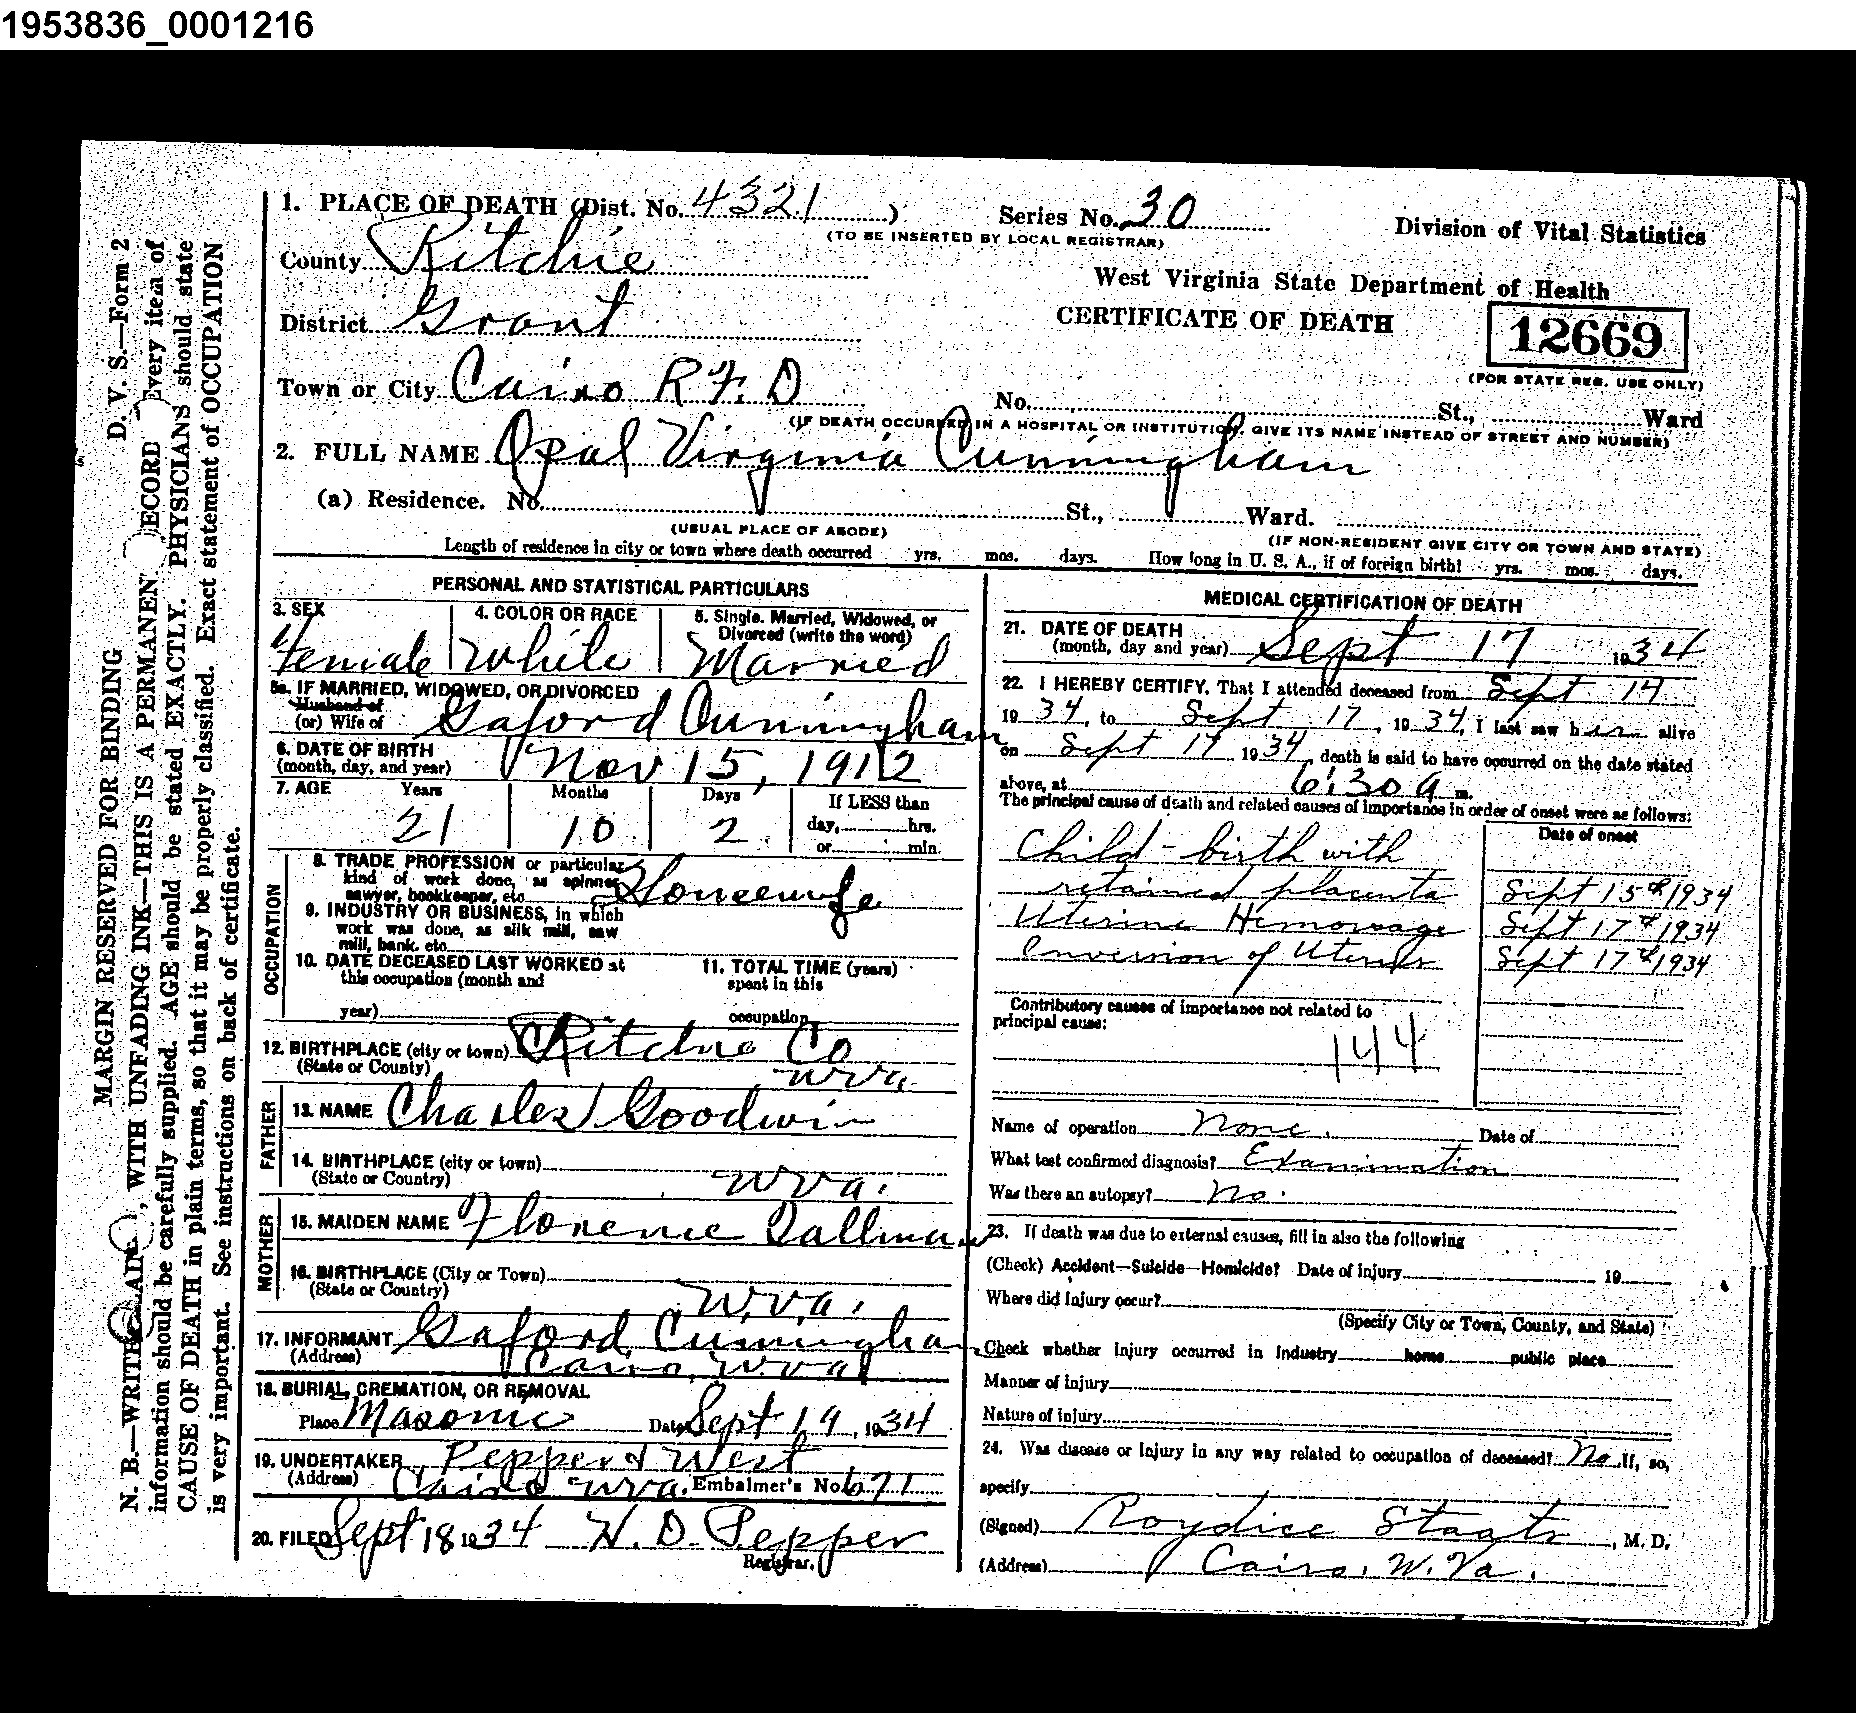 1953836_0001216
1. PLACE OF DEATH (Dist. No. 4321) Series No. 30 Division of Vital Statistics
(TO BE INSERTED BY LOCAL REGISTRAR)
County Ritchie
West Virginia State Department of Health
District Grant
CERTIFICATE OF DEATH
12669
(FOR STATE REG. USE ONLY)
Town or City Cairo R.F.D No. St., Ward
(IF DEATH OCCURRED IN A HOSPITAL OR INSTITUTION, GIVE ITS NAME INSTEAD OF STREET AND NUMBER)
2. FULL NAME Opal Virginia Cunningham
(a) Residence. No. St., Ward.
(USUAL PLACE OF ABODE) (IF NON-RESIDENT GIVE CITY OR TOWN AND STATE)
Length of residence in city or town where death occurred yrs. mos. days. How long in U. S. A., if of foreign birth? yrs. mos. days.
PERSONAL AND STATISTICAL PARTICULARS
3. SEX 4. COLOR OR RACE 5. Single. Married, Widowed, or
Divorced (write the word)
Female White Married
5a. IF MARRIED, WIDOWED, OR DIVORCED
Husband of
(or) Wife of Gaford Cunningham
6. DATE OF BIRTH
(month, day, and year) Nov 15, 1912
7. AGE Years Months Days If LESS than
21 10 2 day, hrs.
or min.
OCCUPATION
8. TRADE, PROFESSION or particular
kind of work done, as spinner,
sawyer, bookkeeper, etc. Housewife
9. INDUSTRY OR BUSINESS, in which
work was done, as silk mill, saw
mill, bank, etc.
10. DATE DECEASED LAST WORKED at
this occupation (month and
year)
11. TOTAL TIME (years)
spent in this
occupation
12. BIRTHPLACE (city or town) Ritchie Co
(State or County) W Va.
FATHER
13. NAME Charles Goodwin
14. BIRTHPLACE (city or town)
(State or Country) W Va.
MOTHER
15. MAIDEN NAME Florence Tallman
16. BIRTHPLACE (City or Town)
(State or Country) W. Va.
17. INFORMANT Gaford Cunningham
(Address) Cairo, W. Va
18. BURIAL, CREMATION, OR REMOVAL
Place Masonic Date Sept 19, 1934
19. UNDERTAKER Pepper & West
(Address) Cairo W Va. Embalmer's No. 671
20. FILED Sept 18 1934 H. D. Pepper
Registrar.
MEDICAL CERTIFICATION OF DEATH
21. DATE OF DEATH
(month, day and year) Sept 17 1934
22. I HEREBY CERTIFY, That I attended deceased from Sept 17
1934, to Sept 17, 1934, I last saw her alive
on Sept 17 1934, death is said to have occurred on the date stated
above, at 6:30 a m.
The principal cause of death and related causes of importance in order of onset were as follows:
Date of onset
Child-birth with
retained placenta Sept 15th 1934
Uterine Hemorrage Sept 17th 1934
Inversion of Uterus Sept 17th 1934
Contributory causes of importance not related to
principal cause:
144
Name of operation None. Date of
What test confirmed diagnosis? Examination
Was there an autopsy? No.
23. If death was due to external causes, fill in also the following
(Check) Accident—Suicide—Homicide? Date of injury 19
Where did injury occur?
(Specify City or Town, County, and State)
Check whether injury occurred in industry home public place
Manner of injury
Nature of injury
24. Was disease or injury in any way related to occupation of deceased? No. If, so,
specify
(Signed) Roydice Staats, M. D.
(Address) Cairo, W. Va.
D. V. S.—Form 2
MARGIN RESERVED FOR BINDING
N. B.—WRITE PLAINLY, WITH UNFADING INK—THIS IS A PERMANENT RECORD Every item of
information should be carefully supplied. AGE should be stated EXACTLY. PHYSICIANS should state
CAUSE OF DEATH in plain terms, so that it may be properly classified. Exact statement of OCCUPATION
is very important. See instructions on back of certificate.